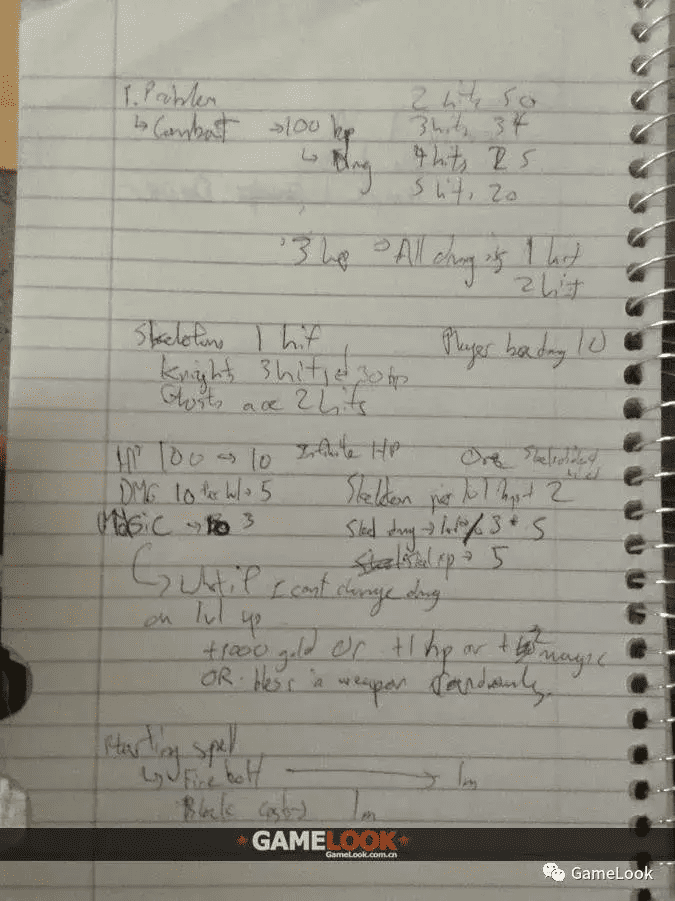 1. Problem
↳ Combat → 100 hp
↳ Dmg
2 hits 50
3 hits 34
4 hits 25
5 hits 20
3 hp ⇒ All dmg is 1 hit
2 hit
Skeletons 1 hit
Knights 3 hits 30 hp
Ghosts are 2 hits
Player base dmg 10
HP 100 → 10 Infinite HP
DMG 10 per lvl → 5
Magic → 3
One
Skeleton per lvl hp + 2
Skel dmg → lvl / 3 + 5
Skel xp → 5
↳ What if I cant change dmg
on lvl up
+1000 gold or +1 hp or +2 magic
OR bless a weapon randomly
Starting spell
↳ Fire bolt → 1m
Block 1m
GAMELOOK
GameLook.com.cn
GameLook